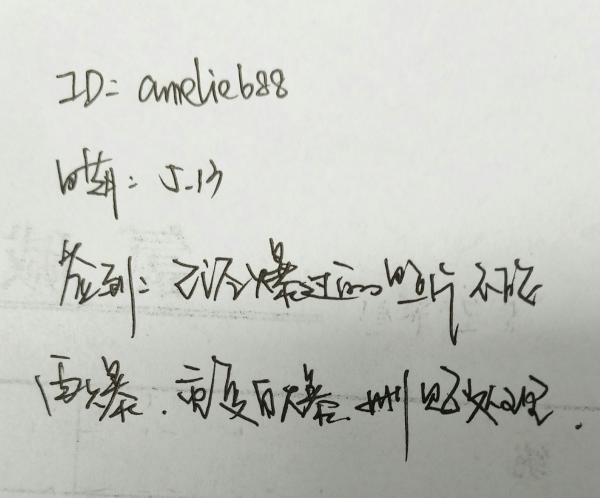 ID: amelie688
日期: 5.13
签到: 已经爆过的照片不能
再爆.重复自爆.删照处理.